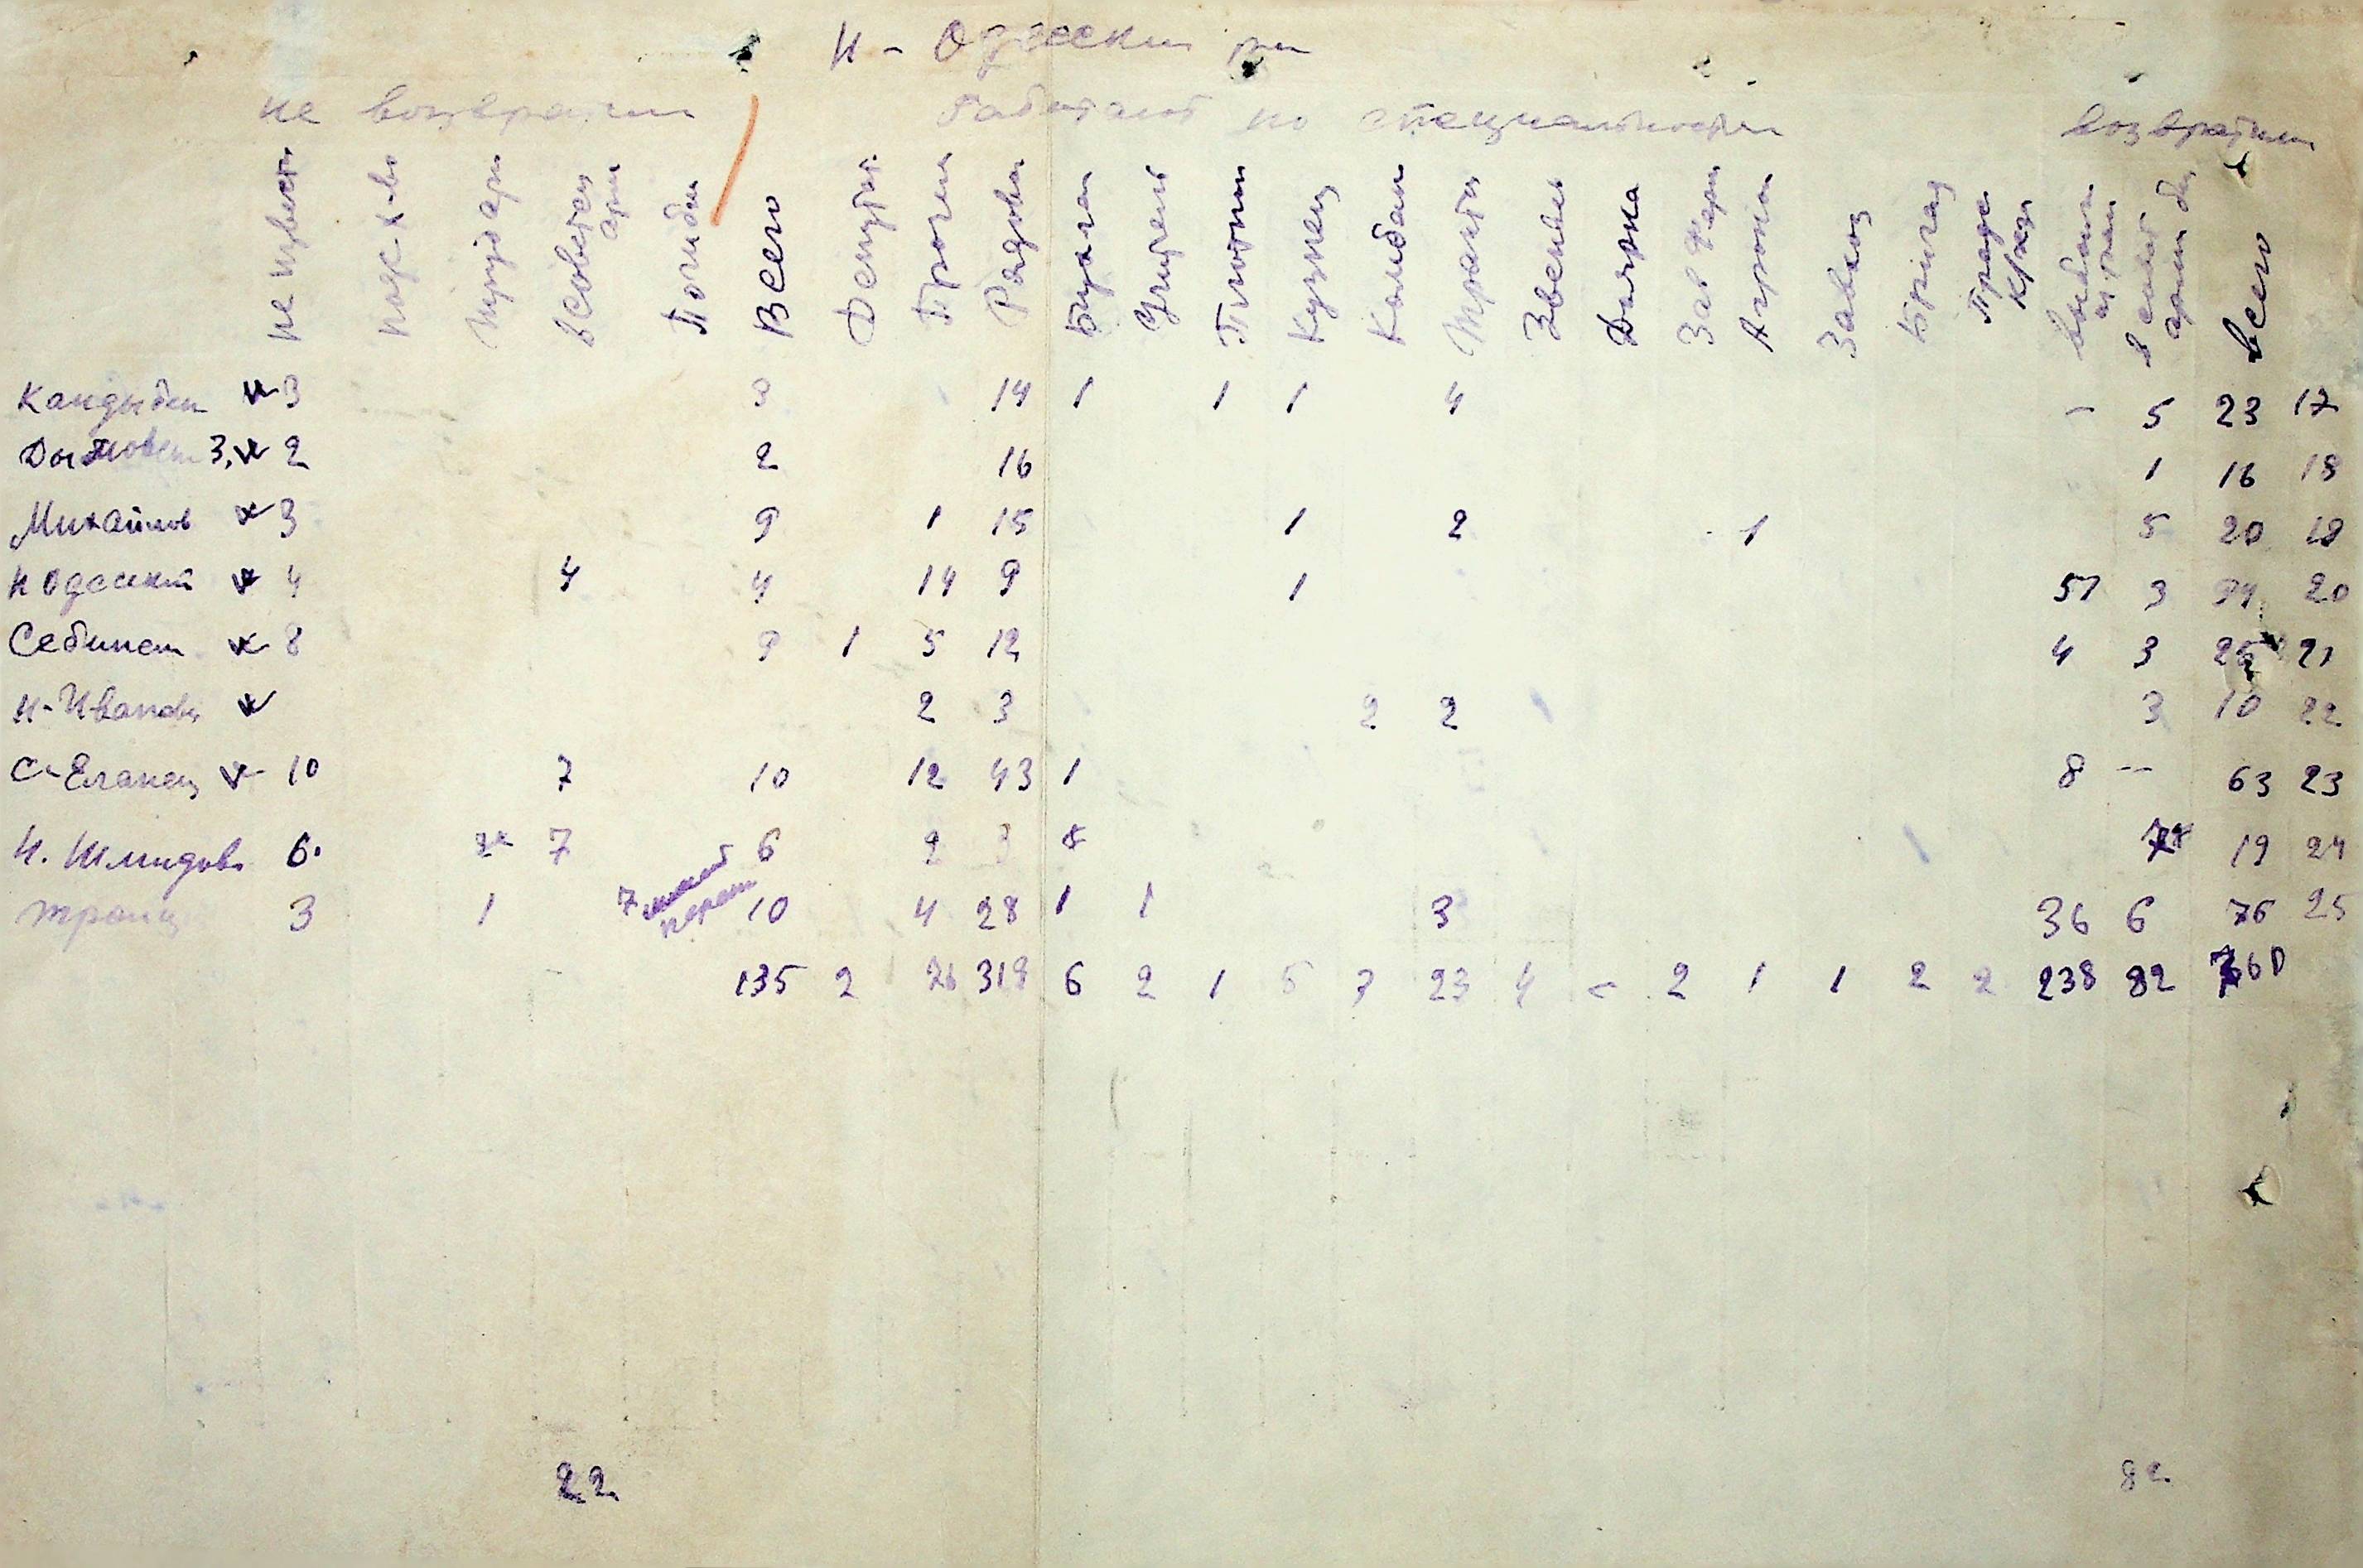 Н - Одесский р-н
не возвратил работают по специальности возвратил
не извест в советск арм Погибл Всего Депутат Прочи Рядовы Бухгал Учител Плотник Кузнец Комбай Тракто Звенев Доярка Зав ферм Агроном Завхоз Бригад Предс К/хоз выбыли в совет арм всего
Кандыбин 3 3 14 1 1 1 4 - 5 23 17
3, 2 2 16 1 16 18
Михайлов 3 9 1 15 1 2 1 5 20 19
Н Одесский 4 4 4 14 9 1 51 3 94 20
Себинск 8 9 1 5 12 4 3 25 21
Н-Ивановк 2 3 2 2 3 10 22
С-Еланец 10 7 10 12 43 1 8 -- 63 23
Н. Шмидтовк 6. 7 6 2 3 8 19 24
Троицк 3 1 7 10 4 28 1 1 3 36 6 76 25
135 2 76 318 6 2 1 5 7 23 4 - 2 1 1 2 2 238 82 760
22 82